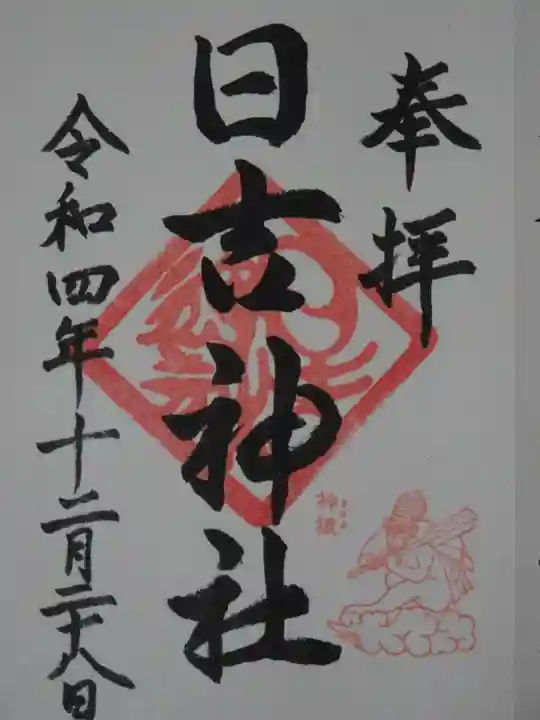 奉拝
日吉神社
神猿
令和四年十二月二十八日